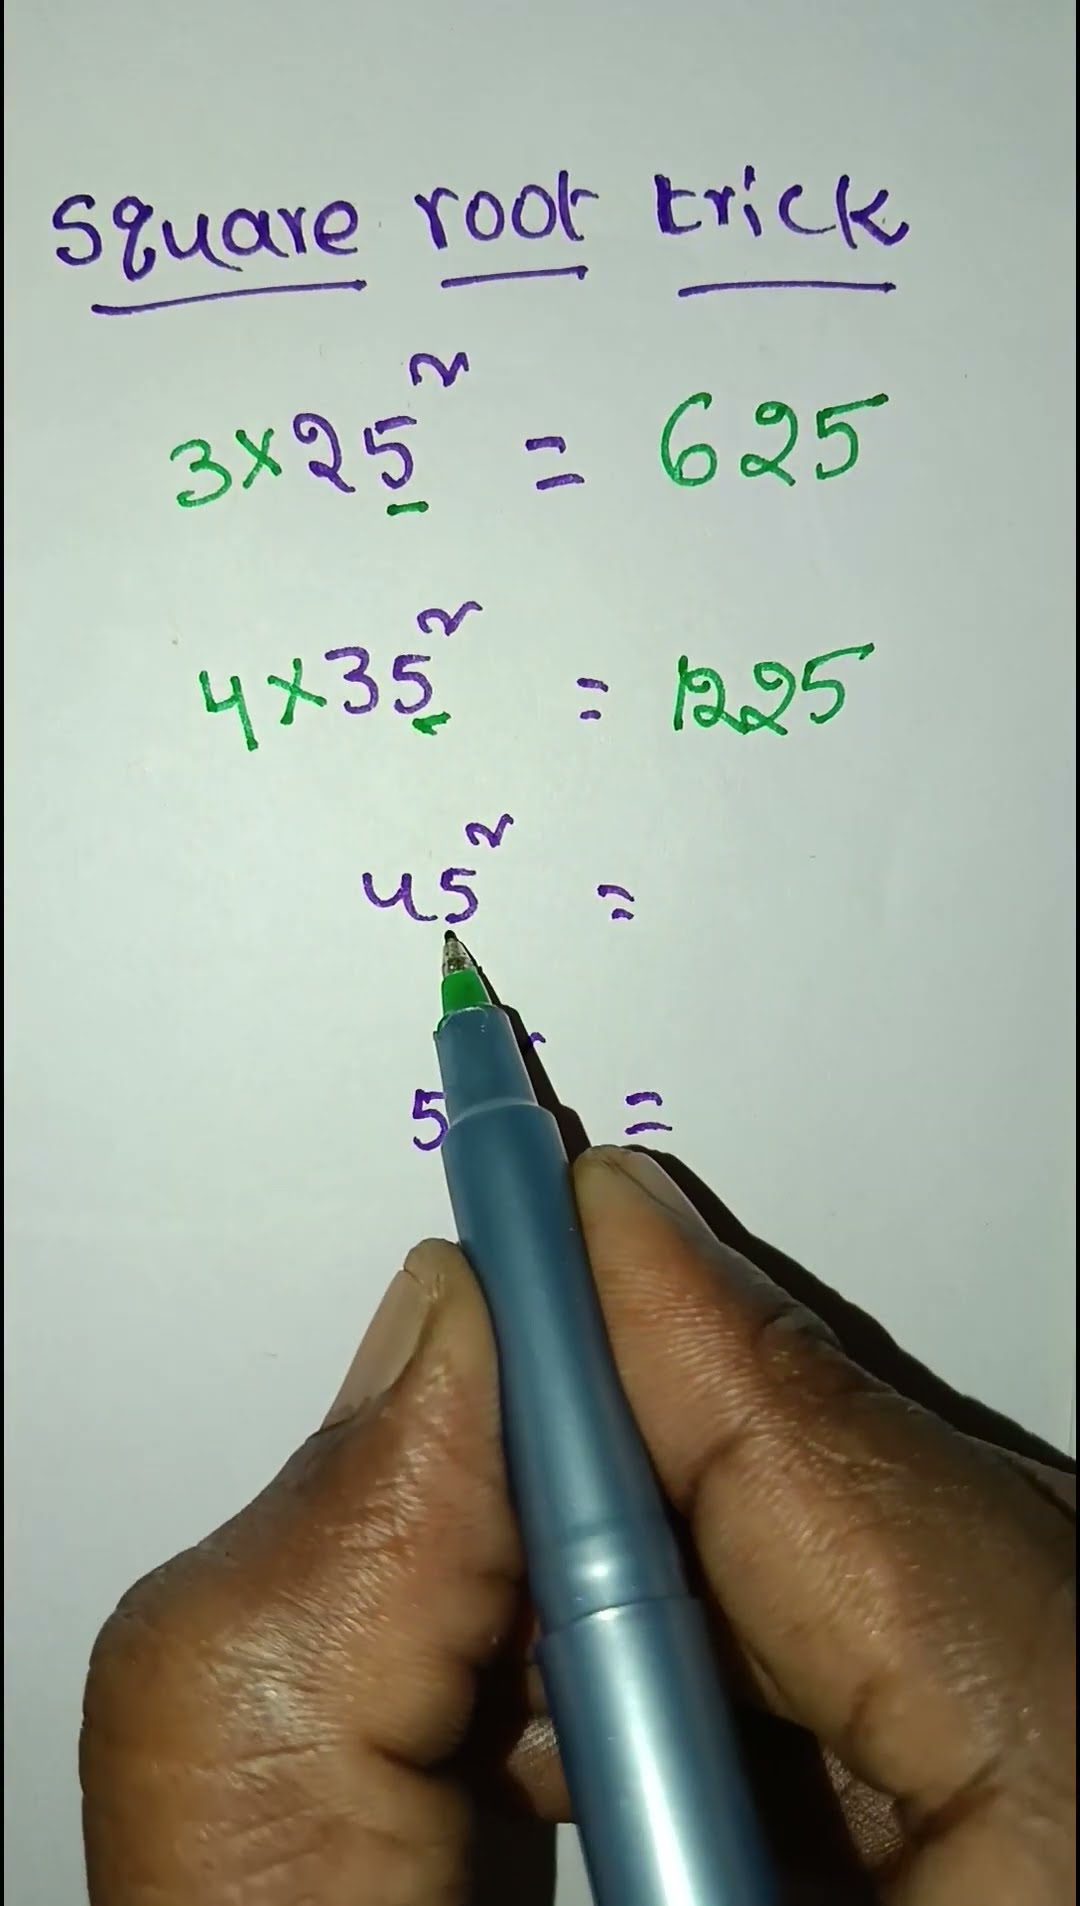 square root trick
3×25² = 625
4×35² = 1225
45² =
5 =